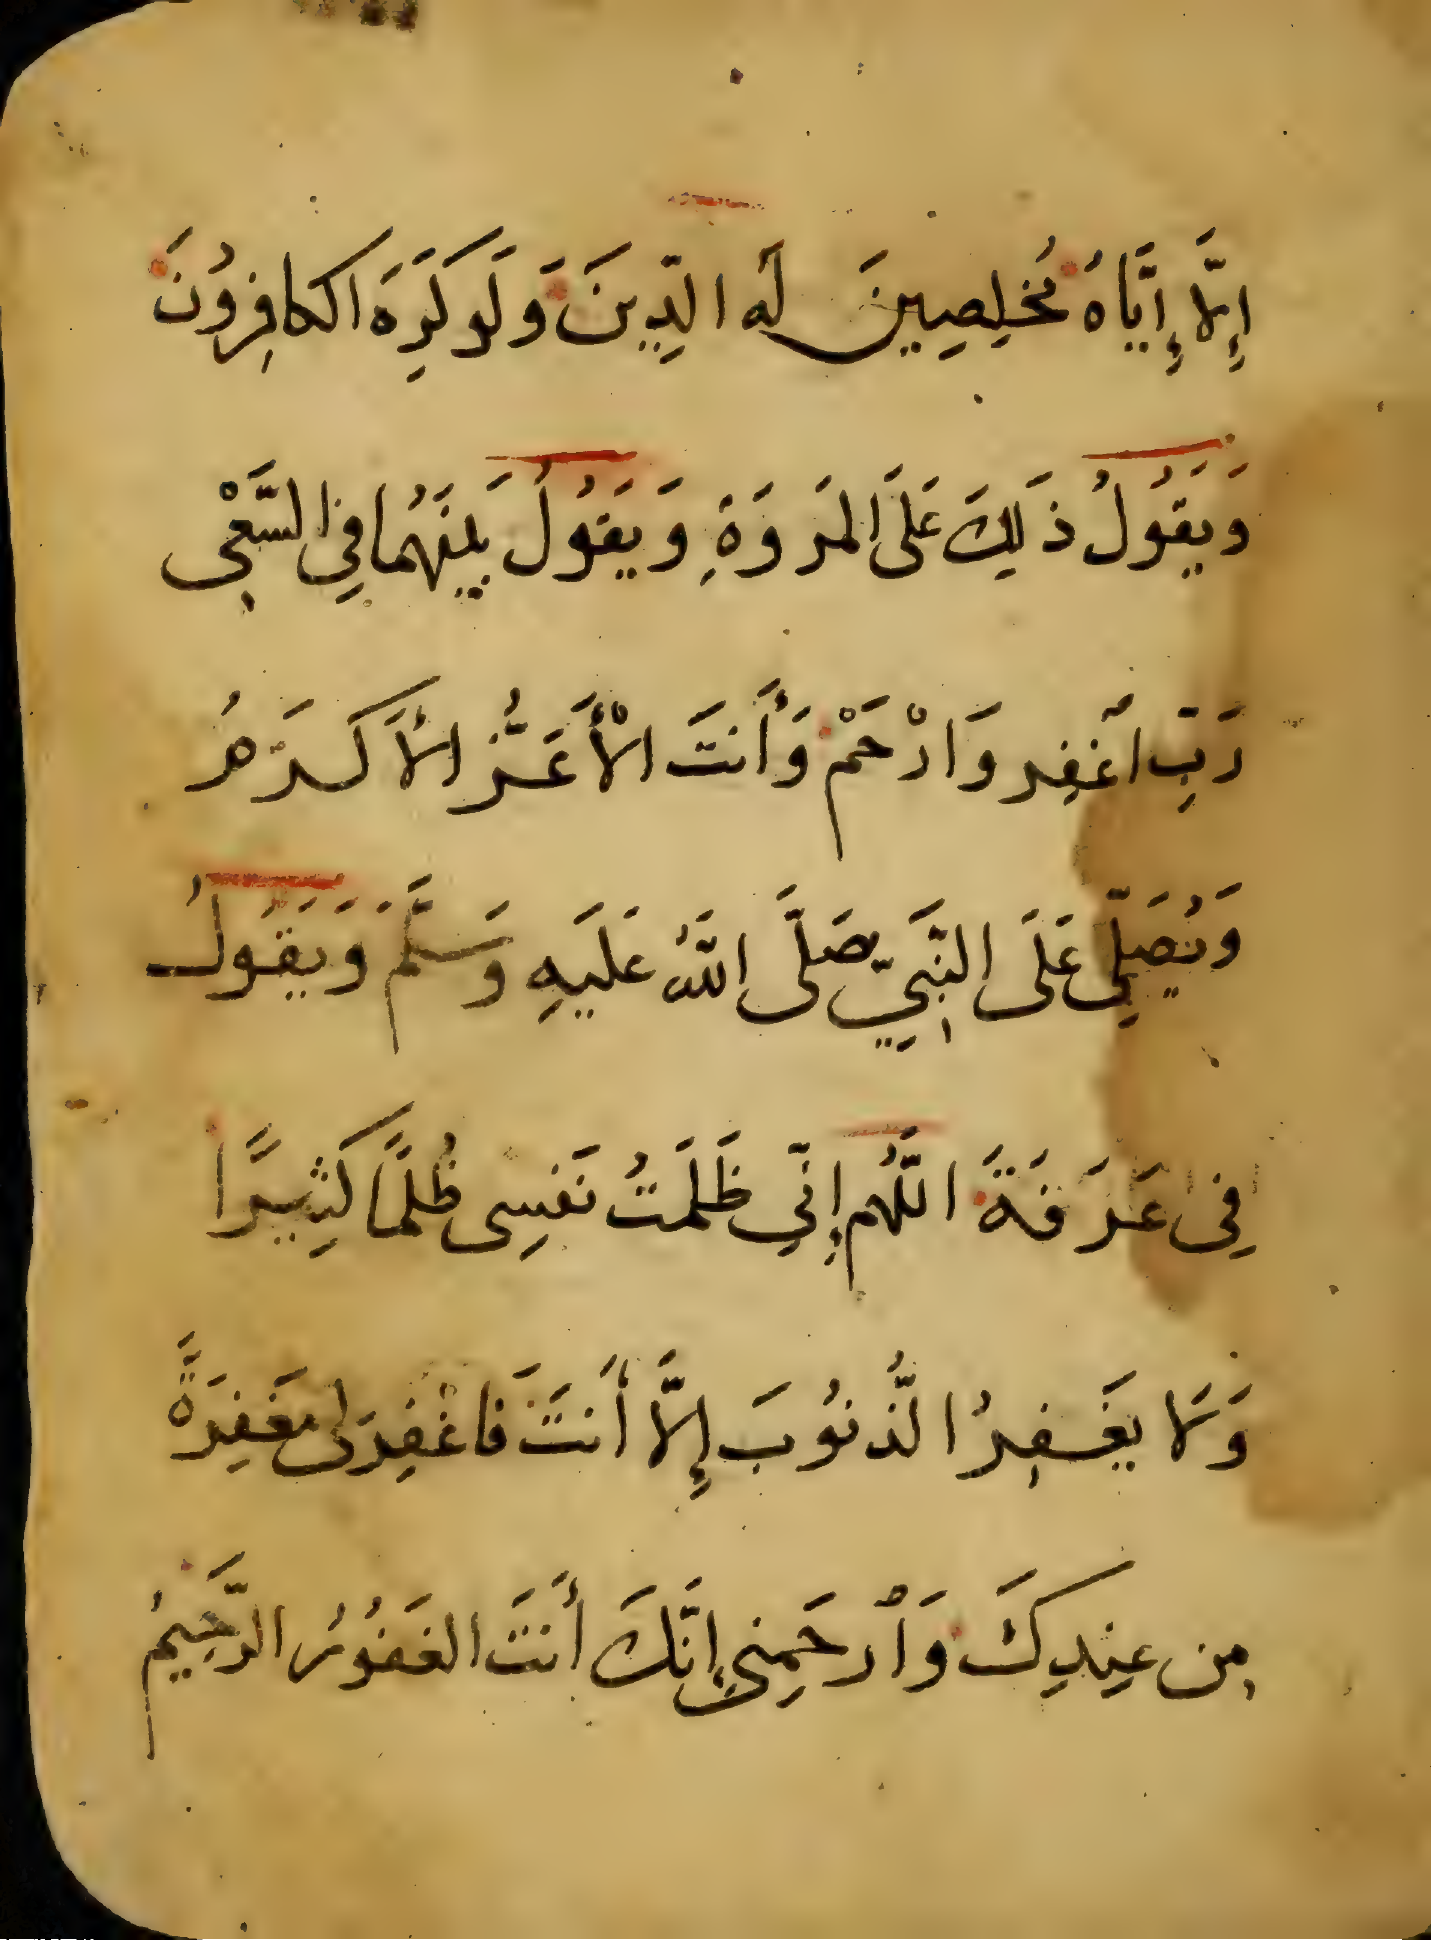 إِلَّا إِيَّاهُ مُخلِصِينَ لَه الدِّينَ وَلَو كَرِهَ الكافِرُونَ
وَيَقُولُ ذَلِكَ عَلَى المَروَةِ وَيَقُولُ بَينَهُمَا فِي السَّعْيِ
رَبِّ اغفِر وَارْحَمْ وَأَنتَ الْأَعَزُّ الأَكرَمُ
وَيُصَلِّي عَلَى النَّبِيِّ صَلَّى اللَّهُ عَلَيهِ وَسَلَّمَ وَيَقُولُ
فِي عَرَفَةَ اللَّهُم إِنِّي ظَلَمتُ نَفسِي ظُلمًا كَثِيرًا
وَلَا يَغفِرُ الذُّنُوبَ إِلَّا أَنتَ فَاغفِر لِي مَغفِرَةً
مِن عِندِكَ وَارحَمنِي إِنَّكَ أَنتَ الغَفُورُ الرَّحِيمُ